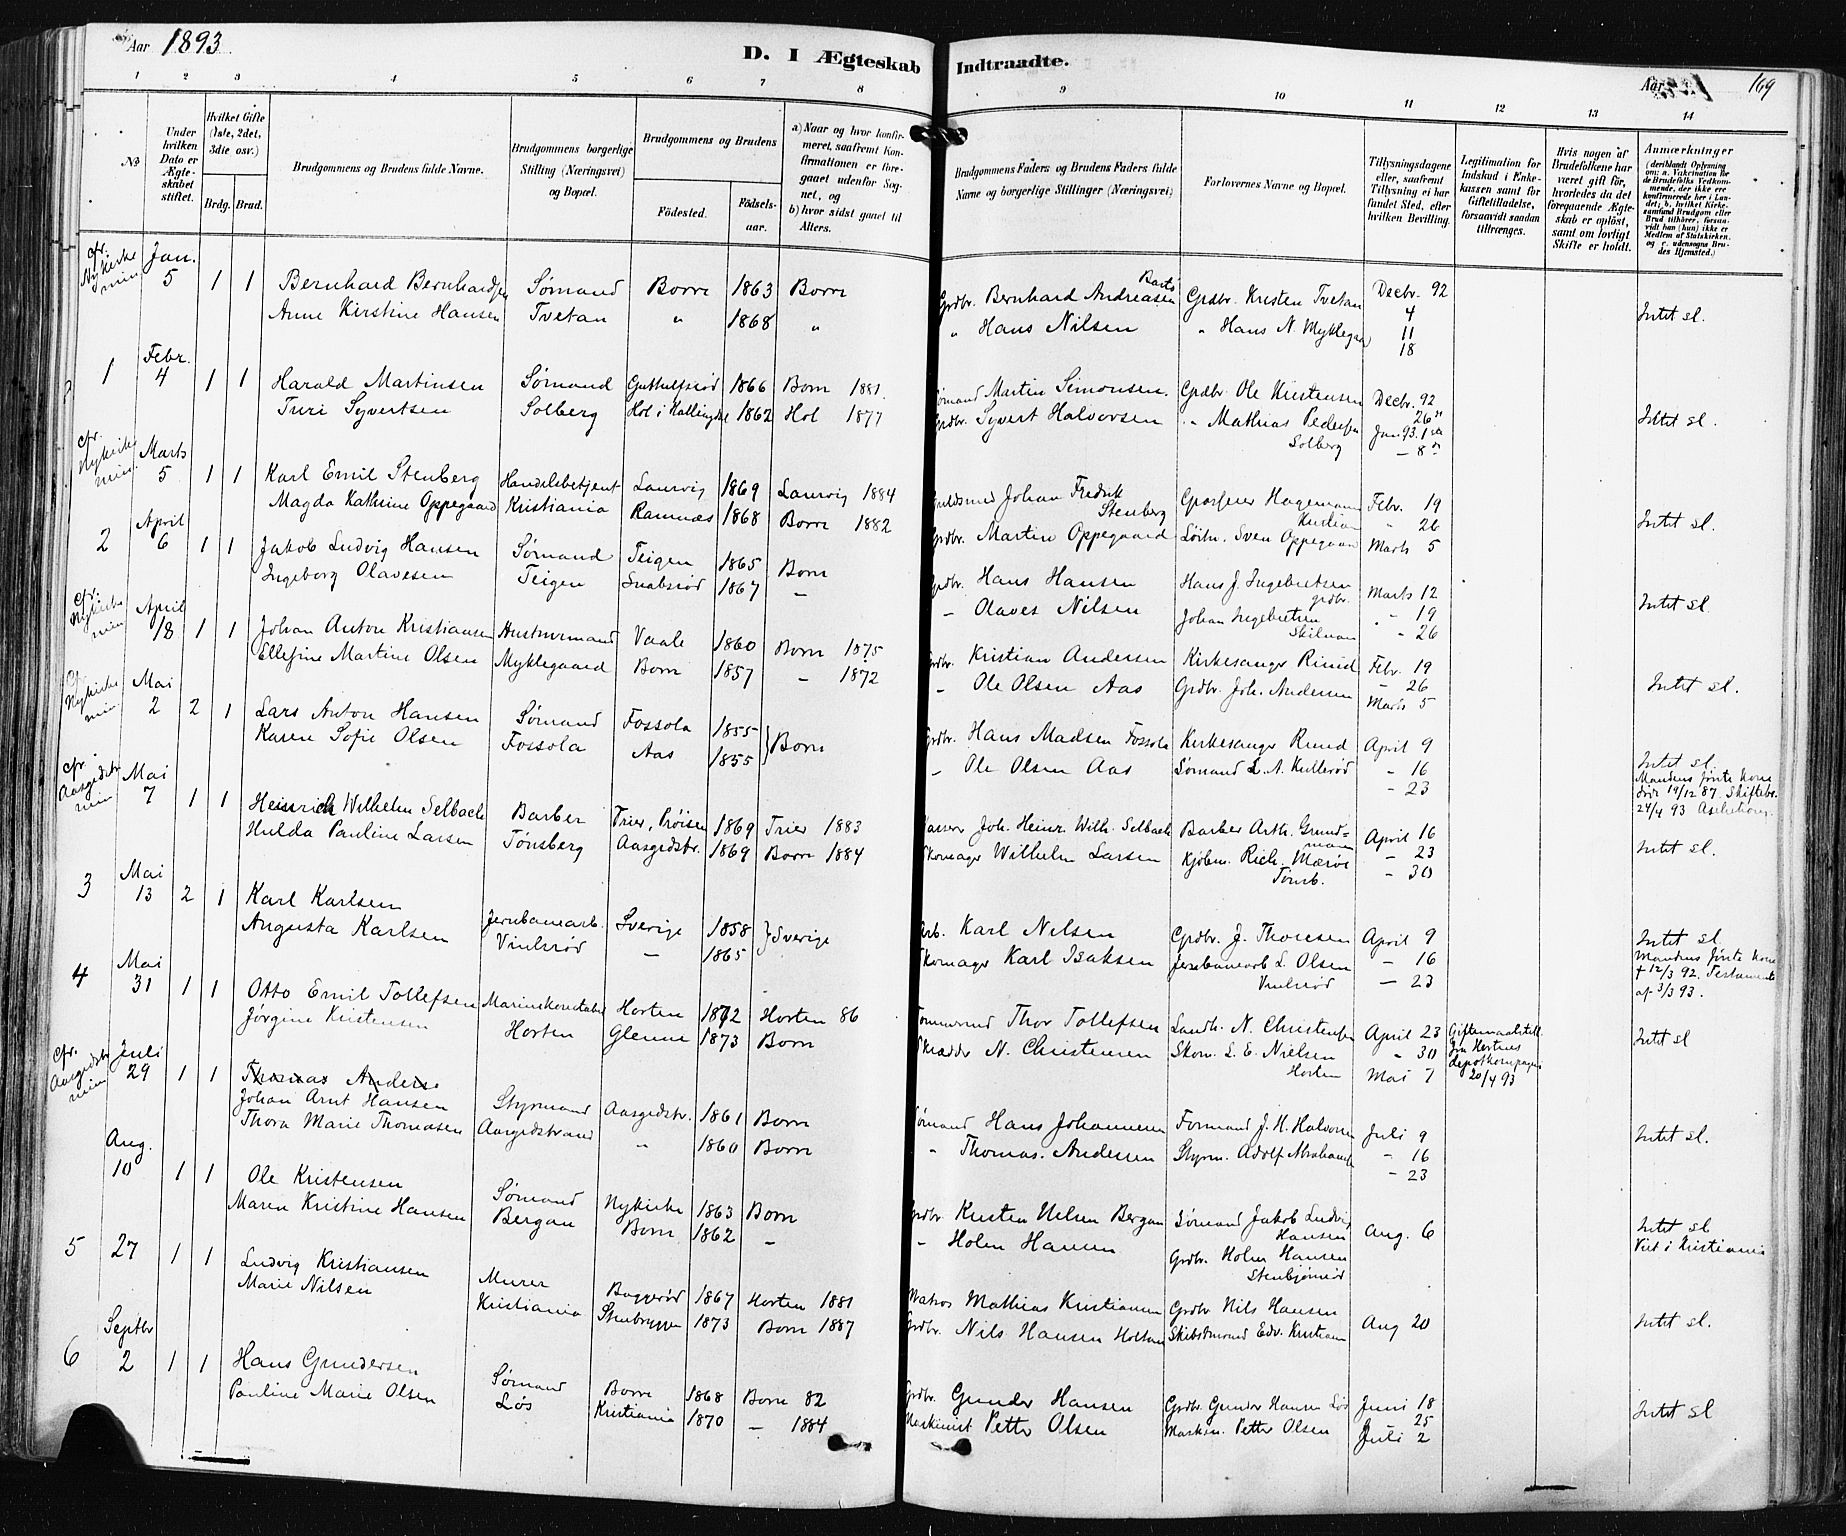 Aar 1893.
D. I Ægteskab Indtraadte.
Aar 169
1 2 3 4 5 6 7 8 9 10 11 12 13 14
No
Under hvilken Dato er Ægteskabet stiftet.
Hvilket Gifte (1ste, 2det, 3die osv.)
Brdg. Brud.
Brudgommens og Brudens fulde Navne.
Brudgommens borgerlige Stilling (Næringsvei) og Bopæl.
Brudgommens og Brudens
Fødested. Fødsels-aar.
a) Naar og hvor konfirmeret, saafremt Konfirmationen er foregaaet udenfor Sognet, og
b) hvor sidst gaaet til Alters.
Brudgommens Faders og Brudens Faders fulde Navne og borgerlige Stillinger (Næringsvei)
Forlovernes Navne og Bopæl.
Tillysningsdagene eller, saafremt Tillysning ei har fundet Sted, efter hvilken Bevilling.
Legitimation for Indskud i Enkekassen samt for Giftetilladelse, forsaavidt saadan tiltrænges.
Hvis nogen af Brudefolkene har været gift før, hvorledes da det foregaaende Ægteskab er opløst, samt om lovligt Skifte er holdt.
Anmærkninger
(deriblandt Oplysning om: a. Vaccination for de Brudefolks Vedkommende, der ikke ere konfirmerede her i Landet; b. hvilket Kirkesamfund Brudgom eller Brud tilhører, forsaavidt han (hun) ikke er Medlem af Statskirken, og c. udensogns Brudes Hjemsted.)
cfr. Nykirke min Jan. 5 1 1 Bernhard Bernhardsen Sømand Borre 1863 Borre Grdbr. Bernhard Andreasen Bastø Grdbr. Kristen Tvetan Decbr. 92 4
Anne Kirstine Hansen Tvetan " 1868 " " Hans Nilsen " Hans N. Myklegaa 11 Intet sl.
18
1 Febr. 4 1 1 Harald Martinsen Sømand 1866 Borre 1881. Sømand Martin Simonsen. Grdbr. Ole Kristensen Decbr. 92
Turi Syvertsen Solberg Hol i Hallingd 1862 Hol 1877 Grdbr. Syvert Halvorsen " Mathias Pedersen Solberg 26 Jan 93. 1 – 8 Intet sl.
cfr. Nykirke min Marts 5 1 1 Karl Emil Stenberg Handelsbetjent Laurvig 1869 Laurvig 1884 Guldsmed Johan Fredrik Stenberg Hagemann Kristian Febr. 19
Magda Kathrine Oppegaard Kristiania Ramnæs 1868 Borre 1882 Grdbr. Martin Oppegaard Løitn. Sven Oppegaar " 26 Marts 5 Intet sl.
2 April 6 1 1 Jakob Ludvig Hansen Sømand Teigen 1865 Borre Grdbr. Hans Hansen Hans J. Ingebretsen grdbr. Marts 12
Ingeborg Olavesen Teigen Snabsrød 1867 – – Olaves Nilsen Johan Ingebretsen " 19 – 26 Intet sl.
cfr. Nykirke min April 18 1 1 Johan Anton Kristiansen Husmand Vaale 1860 Borre 1875 Grdbr. Kristian Andersen Kirkesanger Ruud Febr. 19
Ellefine Martine Olsen Myklegaard Borre 1857 – 1872 – Ole Olsen Aas Grdbr. Joh. Andersen – 26 Marts 5 Intet sl.
cf. Nykirke min Mai 2 2 1 Lars Anton Hansen Sømand Fossola 1855 } Borre Grdbr. Hans Madsen Fossola Kirkesanger Ruud April 9
Karen Sofie Olsen Fossola Aas 1855 – Ole Olsen Aas Sømand L. A. Kullerød – 16 – 23 Intet sl. Mandens første Kone døde 19/12 87. Skiftebr. 24/4 93
cfr. Aasgrdstr min Mai 7 1 1 Heinrich Wilhelm Selbach Barber Trier, Prøisen 1869 Trier 1883 Joh. Heinr. Wilh. Selbach Barber Arth. Grundmann April 16
Hulda Pauline Larsen Tønsberg Aasgrdstr. 1869 Borre 1884 Skomager Wilhelm Larsen Kjøbm. Rich. Mærøe Tønsb. – 23 – 30 Intet sl.
3 Mai 13 2 1 Karl Karlsen Jernbanearb. Sverige 1858 } Sverige Arb. Karl Nilsen Grdbr. J. Thoresen April 9
Augusta Karlsen Vinlerød – 1865 Skomager Karl Isaksen Jernbanearb L. Olsen Vinlerød – 16 – 23 Intet sl. Mandens første Kone † 12/3 92. Testamente af 3/3 93.
4 Mai 31 1 1 Otto Emil Tollefsen Marinekonstabel Horten 1872 Horten 86 Tømmermd Thor Tollefsen Landh. N. Christensen April 23 Giftermaalstill. fra Hortens Depotkompagni 20/4 93
Jørgine Kristensen Horten Glenne 1873 Borre Skrædder N. Christensen Skom. L. E. Nielsen Horten " 30 Mai 7 Intet sl
cfr. Aasgrdstr min Juli 29 1 1 Thomas Anderse
Johan Arnt Hansen Styrmand Aasgrdstr. 1861 Borre Sømand Hans Johannesen Formand J. H. Halvorsen Juli 9
Thora Marie Thomasen Aasgrdstrand " 1860 Borre " Thomas. Andersen Styrm. Adolf Abrahamse – 16 – 23 Intet sl.
Aug. 10 1 1 Ole Kristensen Sømand Nykirke 1863 Borre Grdbr. Kristen Nilsen Bergan Sømand Jakob Ludvig Hansen Aug. 6
Maren Kristine Hansen Bergan Borre 1862 – " Holm Hansen Grdbr. Holm Hansen Stenbjørnrød Intet sl Viet i Kristiania
5 27 1 1 Ludvig Kristiansen Murer Baggerød 1867 Horten 1881 Matros Mathias Kristiansen Grdbr Nils Hansen
Marie Nilsen Kristiania Stenbryggen 1873 Borre 1887 Grdbr. Nils Hansen Holtan Skibstmrmd Edv. Kristiansen Aug 20 Intet sl.
6 Septbr 2 1 1 Hans Gundersen Sømand Borre 1868 Borre 82 Grdbr. Gunder Hansen Grdbr. Gunder Hansen Løs Juni 18
Pauline Marie Olsen Løs Kristiania 1870 – 1884 Maskinist Petter Olsen Maskin. Petter Olsen 25 Juli 2 Intet sl